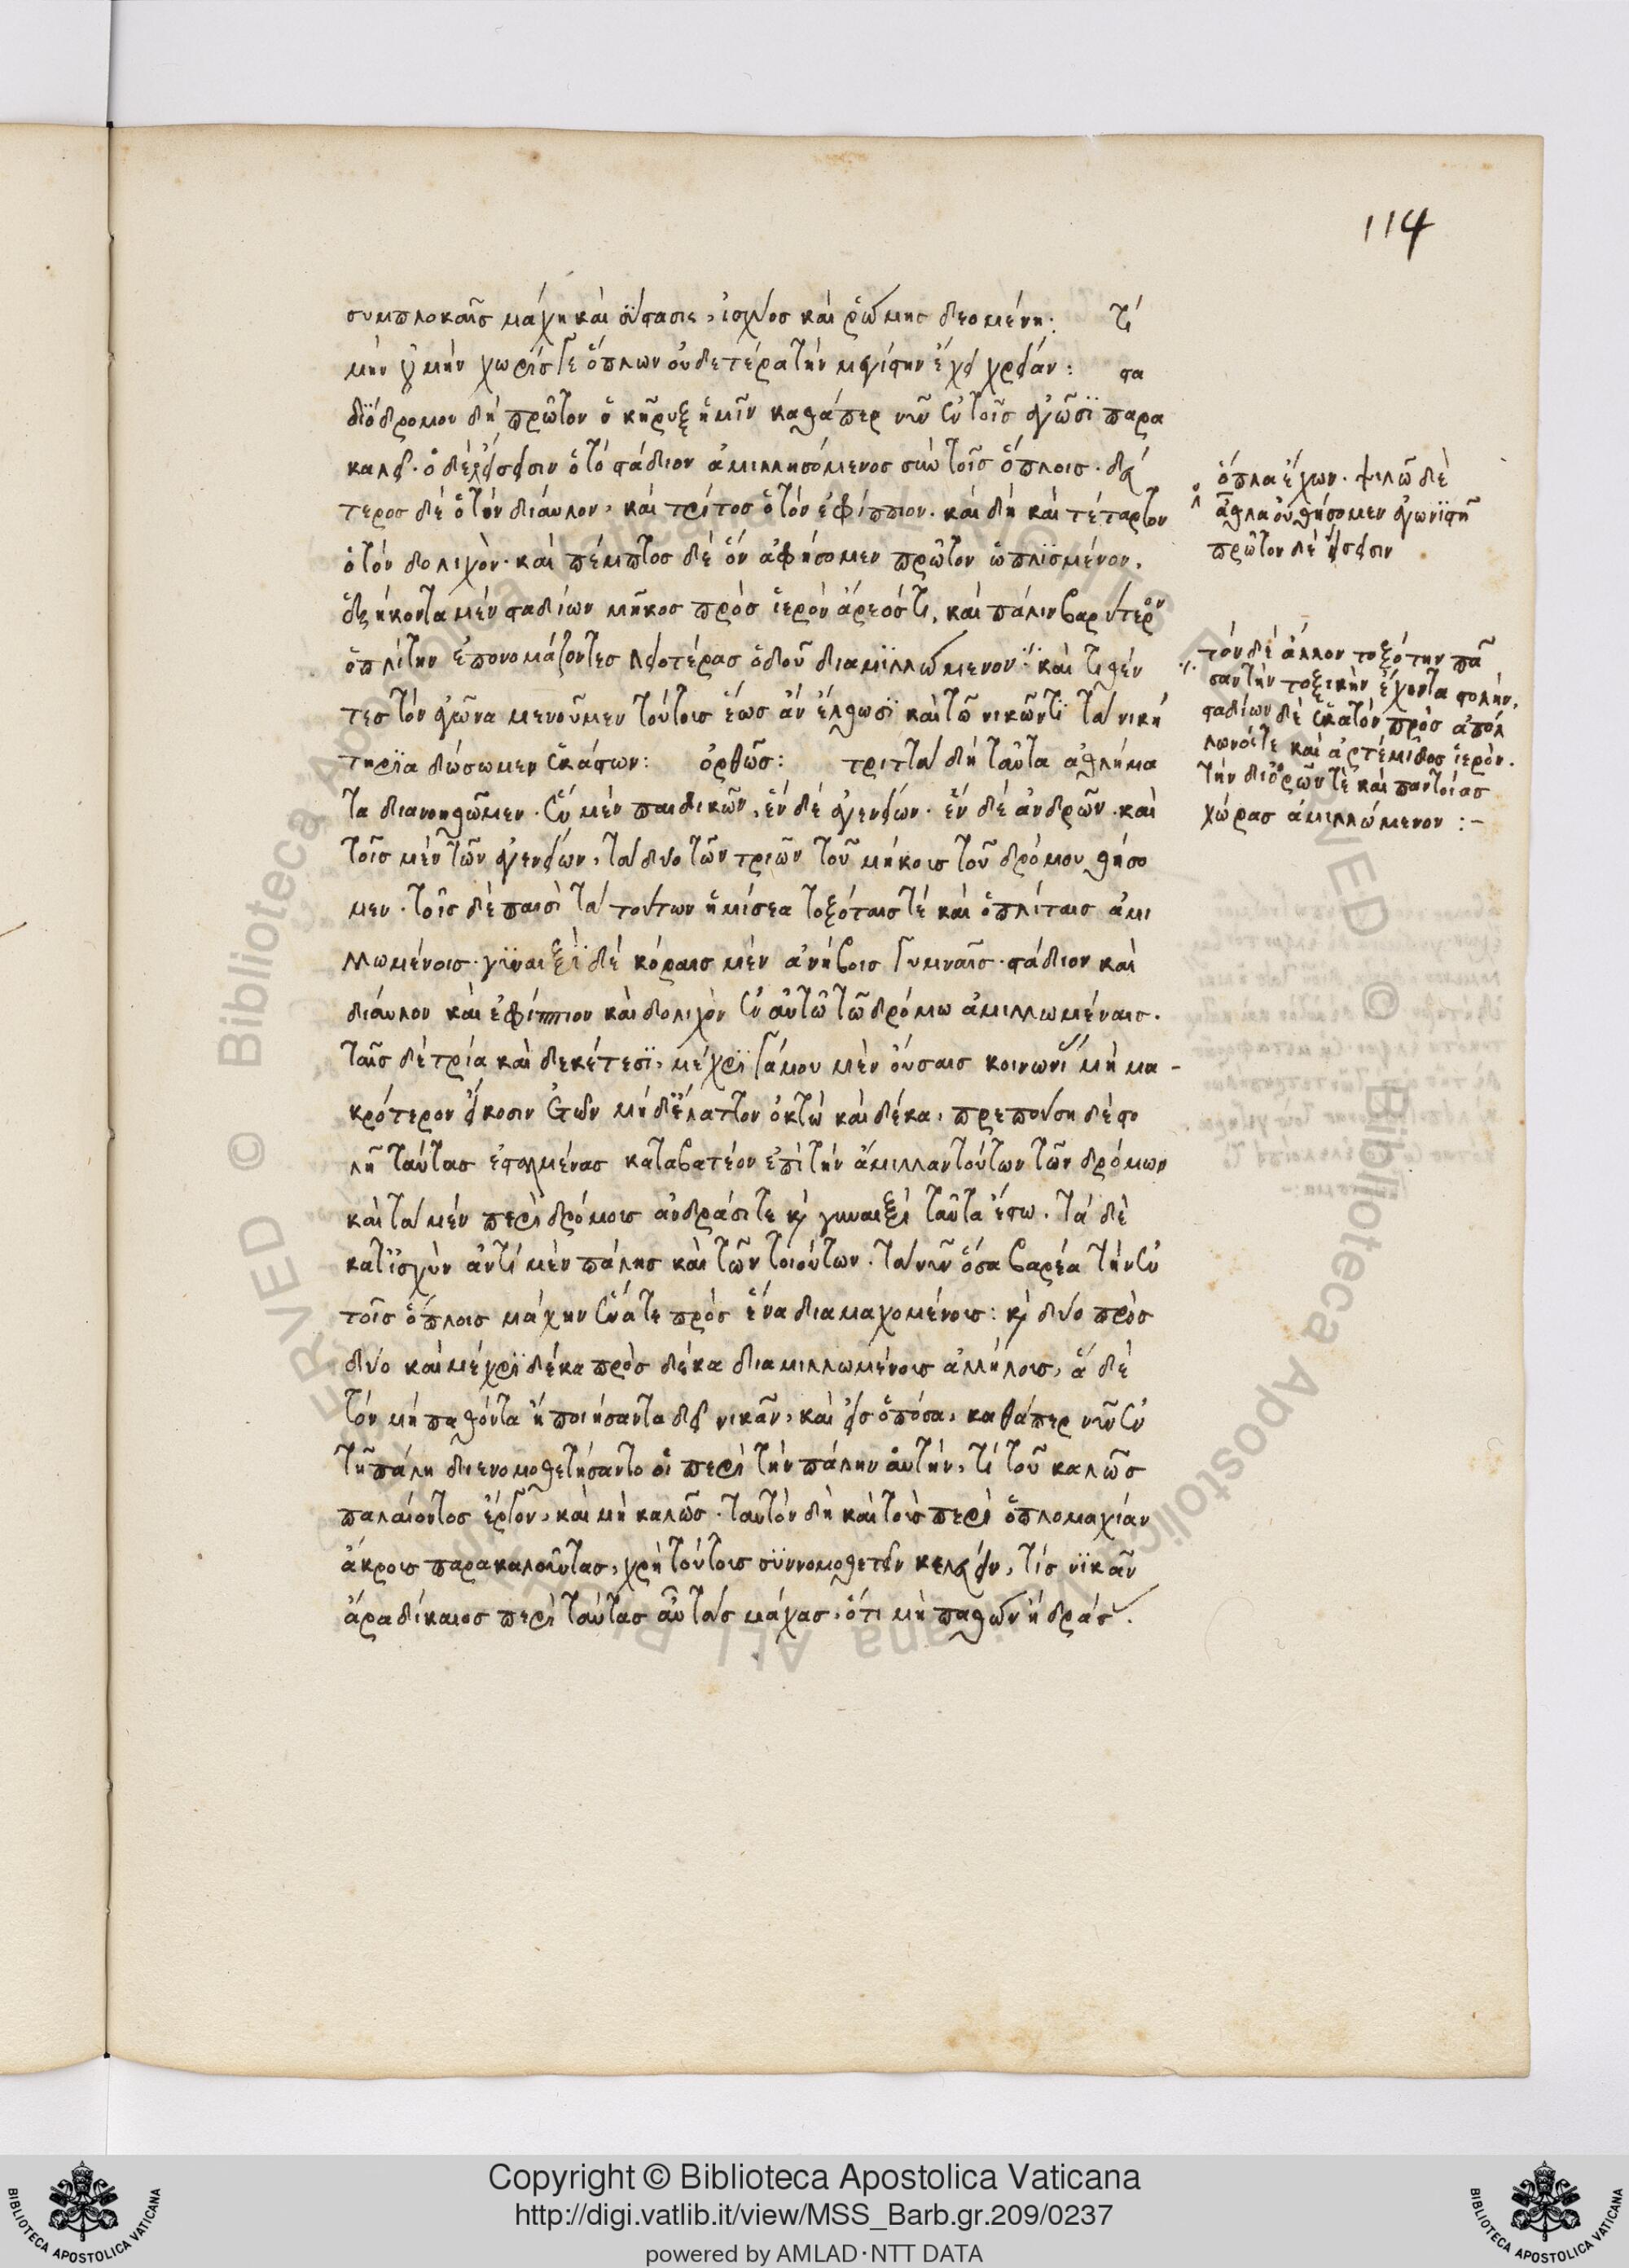 114
συμπλοκαῖς μάχη καὶ σύστασις, ἰσχύος καὶ ῥώμης δεομένη: τί
μήν οὐ μὴν χωρίς γε ὅπλων οὐδετέρα τὴν μεγίστην ἔχει χρείαν: στα
διοδρόμον δὴ πρῶτον ὁ κῆρυξ ἡμῖν καθάπερ νῦν ἐν τοῖς ἀγῶσι παρα
καλεῖ. ὁ δὲ εἴσεισιν ὁ τὸ στάδιον ἁμιλλησόμενος σὺν τοῖς ὅπλοις. δεύ
τερος δὲ ὁ τὴν δίαυλον, καὶ τρίτος ὁ τὸν ἐφίππιον. καὶ δὴ καὶ τέταρτον
ὁ τὸν δολιχὸν. καὶ πέμπτος δὲ ὃν ἀφήσομεν πρῶτον ὡπλισμένον.
ἑξήκοντα μὲν σταδίων μῆκος πρὸς ἱερὸν ἄρεός τι, καὶ πάλιν βαρύτερον
ὁπλίτην ἐπονομάζοντες λειοτέρας ὁδοῦ διαμιλλώμενον ·/· καὶ τιθέν
τες τὸν ἀγῶνα μενοῦμεν τούτοις ἕως ἂν ἔλθωσι καὶ τῶ νικῶντι τὰ νικη
τήρια δώσωμεν ἑκάστων: ὀρθῶς: τριττὰ δὴ ταῦτα ἀθλήμα
τα διανοηθῶμεν. ἓν μὲν παιδικῶν, ἓν δὲ ἀγενείων. ἓν δὲ ἀνδρῶν. καὶ
τοῖς μὲν τῶν ἀγενείων, τὰ δύο τῶν τριῶν τοῦ μήκοις τοῦ δρόμου θήσο
μεν. τοῖς δὲ παισὶ τὰ τούτων ἡμίσεα τοξόταις τέ καὶ ὁπλίταις ἁμι
λλωμένοις. γυναιξὶ δὲ κόραις μὲν ἀνήβοις γυμναῖς. στάδιον καὶ
δίαυλον καὶ ἐφίππιον καὶ δολιχὸν ἐν αὐτῶ τῶ δρόμω ἁμιλλωμέναις.
ταῖς δὲ τρία καὶ δεκέτεσι, μέχρι γάμου μὲν οὔσαις κοινωνί μὴ μα-
κρότερον εἴκοσιν ἐτῶν μὴδἔλαττον ὀκτὼ καὶ δέκα, πρεπούση δὲ στο
λῇ ταύτας ἐσταλμένας καταβατέον ἐπὶ τὴν ἅμιλλαν τούτων τῶν δρόμων
καὶ τὰ μὲν περὶ δρόμοις ἀνδράσι τε καὶ γυναιξὶ ταῦτα ἔστω. τὰ δὲ
κατἰσχὺν ἀντὶ μὲν πάλης καὶ τῶν τοιούτων. τὰ νῦν ὅσα βαρέα τὴν ἐν
τοῖς ὅπλοις μάχην ἕνα τε πρὸς ἕνα διαμαχομένοις: καὶ δύο πρὸς
δύο καὶ μέχρι δέκα πρὸς δέκα διαμιλλωμένοις ἀλλήλοις, ἃ δὲ
τὸν μὴ παθόντα ἢ ποιήσαντα δεῖ νικᾶν, καὶ εἰς ὁπόσα, καθάπερ νῦν ἐν
τῇ πάλη διενομοθετήσαντο οἱ περὶ τὴν πάλην αὐτὴν, τί τοῦ καλῶς
παλαίοντος ἔργον, καὶ μὴ καλῶς. ταυτὸν δὴ καὶ τοὺς περὶ ὁπλομαχίαν
ἄκροις παρακαλοῦντας, χρὴ τούτοις συννομοθετεῖν κελεύειν, τίς νικᾶν
ἄρα δίκαιος περὶ ταύτας αὖ τὰς μάχας, ὅτι μὴ παθὼν ἢ δράς.
ὅπλα ἔχων. ψιλῶ δὲ
ἆθλα οὐ θήσομεν ἀγωνιστῇ
πρῶτον δὲ εἴσεισιν
·/· τὸν δὲ ἄλλον τοξότην πᾶ
σαν τὴν τοξικὴν ἔχοντα στολήν,
σταδίων δὲ ἑκατὸν πρὸς ἀπόλ
λωνός τε καὶ ἀρτέμιδος ἱερὸν.
τὴν διὀρῶν τὲ καὶ παντοίας
χώρας ἁμιλλώμενον :-
Copyright © Biblioteca Apostolica Vaticana
http://digi.vatlib.it/view/MSS_Barb.gr.209/0237
powered by AMLAD·NTT DATA